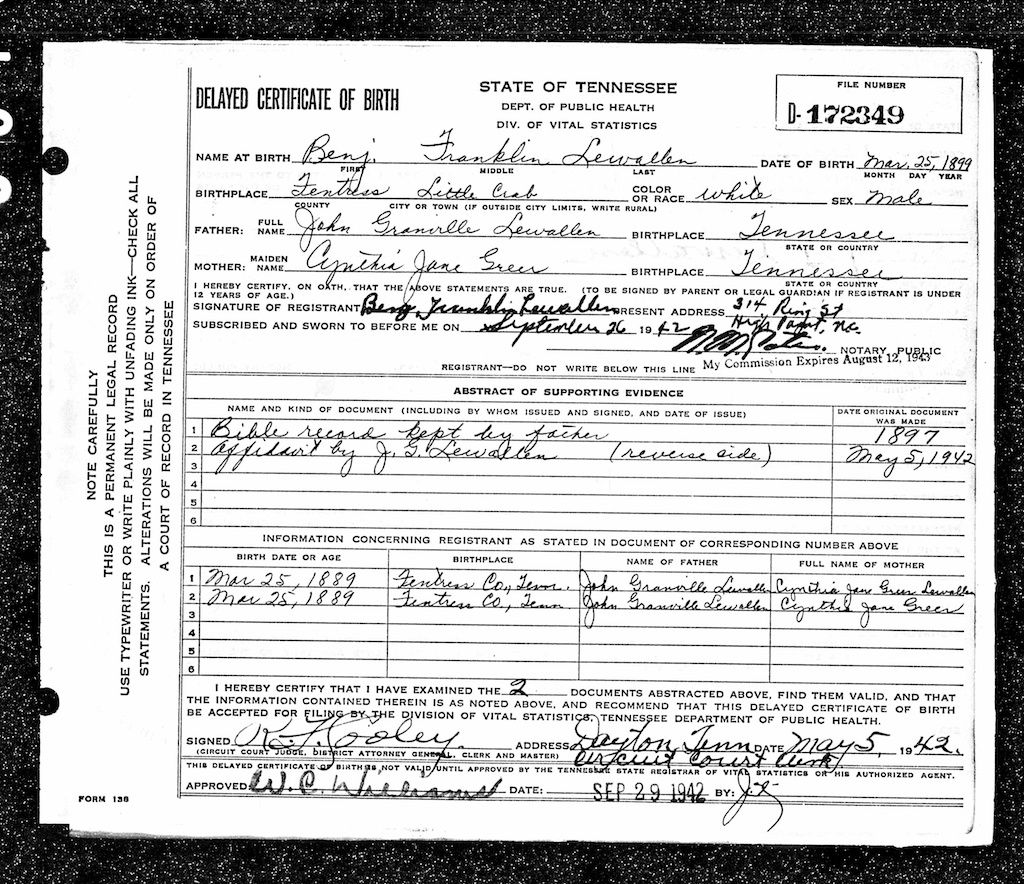 DELAYED CERTIFICATE OF BIRTH
STATE OF TENNESSEE
DEPT. OF PUBLIC HEALTH
DIV. OF VITAL STATISTICS
FILE NUMBER
D-172349
NAME AT BIRTH Benj. Franklin Lewallen DATE OF BIRTH Mar. 25, 1899
FIRST MIDDLE LAST MONTH DAY YEAR
BIRTHPLACE Fentress Little Crab COLOR OR RACE White SEX Male
COUNTY CITY OR TOWN (IF OUTSIDE CITY LIMITS, WRITE RURAL)
FATHER: FULL NAME John Granville Lewallen BIRTHPLACE Tennessee
STATE OR COUNTRY
MOTHER: MAIDEN NAME Cynthia Jane Greer BIRTHPLACE Tennessee
STATE OR COUNTRY
I HEREBY CERTIFY, ON OATH, THAT THE ABOVE STATEMENTS ARE TRUE. (TO BE SIGNED BY PARENT OR LEGAL GUARDIAN IF REGISTRANT IS UNDER
12 YEARS OF AGE.)
SIGNATURE OF REGISTRANT Benj. Franklin Lewallen PRESENT ADDRESS 314 Ring St
High Point, N.C.
SUBSCRIBED AND SWORN TO BEFORE ME ON September 26 1942
NOTARY PUBLIC
My Commission Expires August 12, 1943
REGISTRANT—DO NOT WRITE BELOW THIS LINE
ABSTRACT OF SUPPORTING EVIDENCE
NAME AND KIND OF DOCUMENT (INCLUDING BY WHOM ISSUED AND SIGNED, AND DATE OF ISSUE) DATE ORIGINAL DOCUMENT WAS MADE
1 Bible record kept by father 1897
2 Affidavit by J. G. Lewallen (reverse side) May 5, 1942
3
4
5
6
INFORMATION CONCERNING REGISTRANT AS STATED IN DOCUMENT OF CORRESPONDING NUMBER ABOVE
BIRTH DATE OR AGE BIRTHPLACE NAME OF FATHER FULL NAME OF MOTHER
1 Mar 25, 1889 Fentress Co., Tenn. John Granville Lewallen Cynthia Jane Greer Lewallen
2 Mar 25, 1889 Fentress Co., Tenn John Granville Lewallen Cynthia Jane Greer
3
4
5
6
I HEREBY CERTIFY THAT I HAVE EXAMINED THE 2 DOCUMENTS ABSTRACTED ABOVE, FIND THEM VALID, AND THAT
THE INFORMATION CONTAINED THEREIN IS AS NOTED ABOVE, AND RECOMMEND THAT THIS DELAYED CERTIFICATE OF BIRTH
BE ACCEPTED FOR FILING BY THE DIVISION OF VITAL STATISTICS, TENNESSEE DEPARTMENT OF PUBLIC HEALTH.
SIGNED ADDRESS Dayton, Tenn DATE May 5, 1942.
(CIRCUIT COURT JUDGE, DISTRICT ATTORNEY GENERAL, CLERK AND MASTER) Circuit Court Clerk
THIS DELAYED CERTIFICATE OF BIRTH IS NOT VALID UNTIL APPROVED BY THE TENNESSEE STATE REGISTRAR OF VITAL STATISTICS OR HIS AUTHORIZED AGENT.
APPROVED: W. C. Williams DATE: SEP 29 1942 BY:
FORM 138
NOTE CAREFULLY
THIS IS A PERMANENT LEGAL RECORD
USE TYPEWRITER OR WRITE PLAINLY WITH UNFADING INK—CHECK ALL
STATEMENTS. ALTERATIONS WILL BE MADE ONLY ON ORDER OF
A COURT OF RECORD IN TENNESSEE